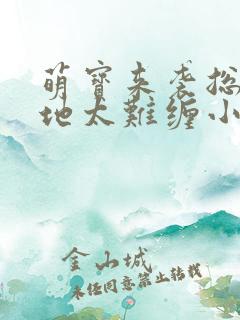 萌寶来袭总
地太難缠小
金山城
未经同意禁止转载